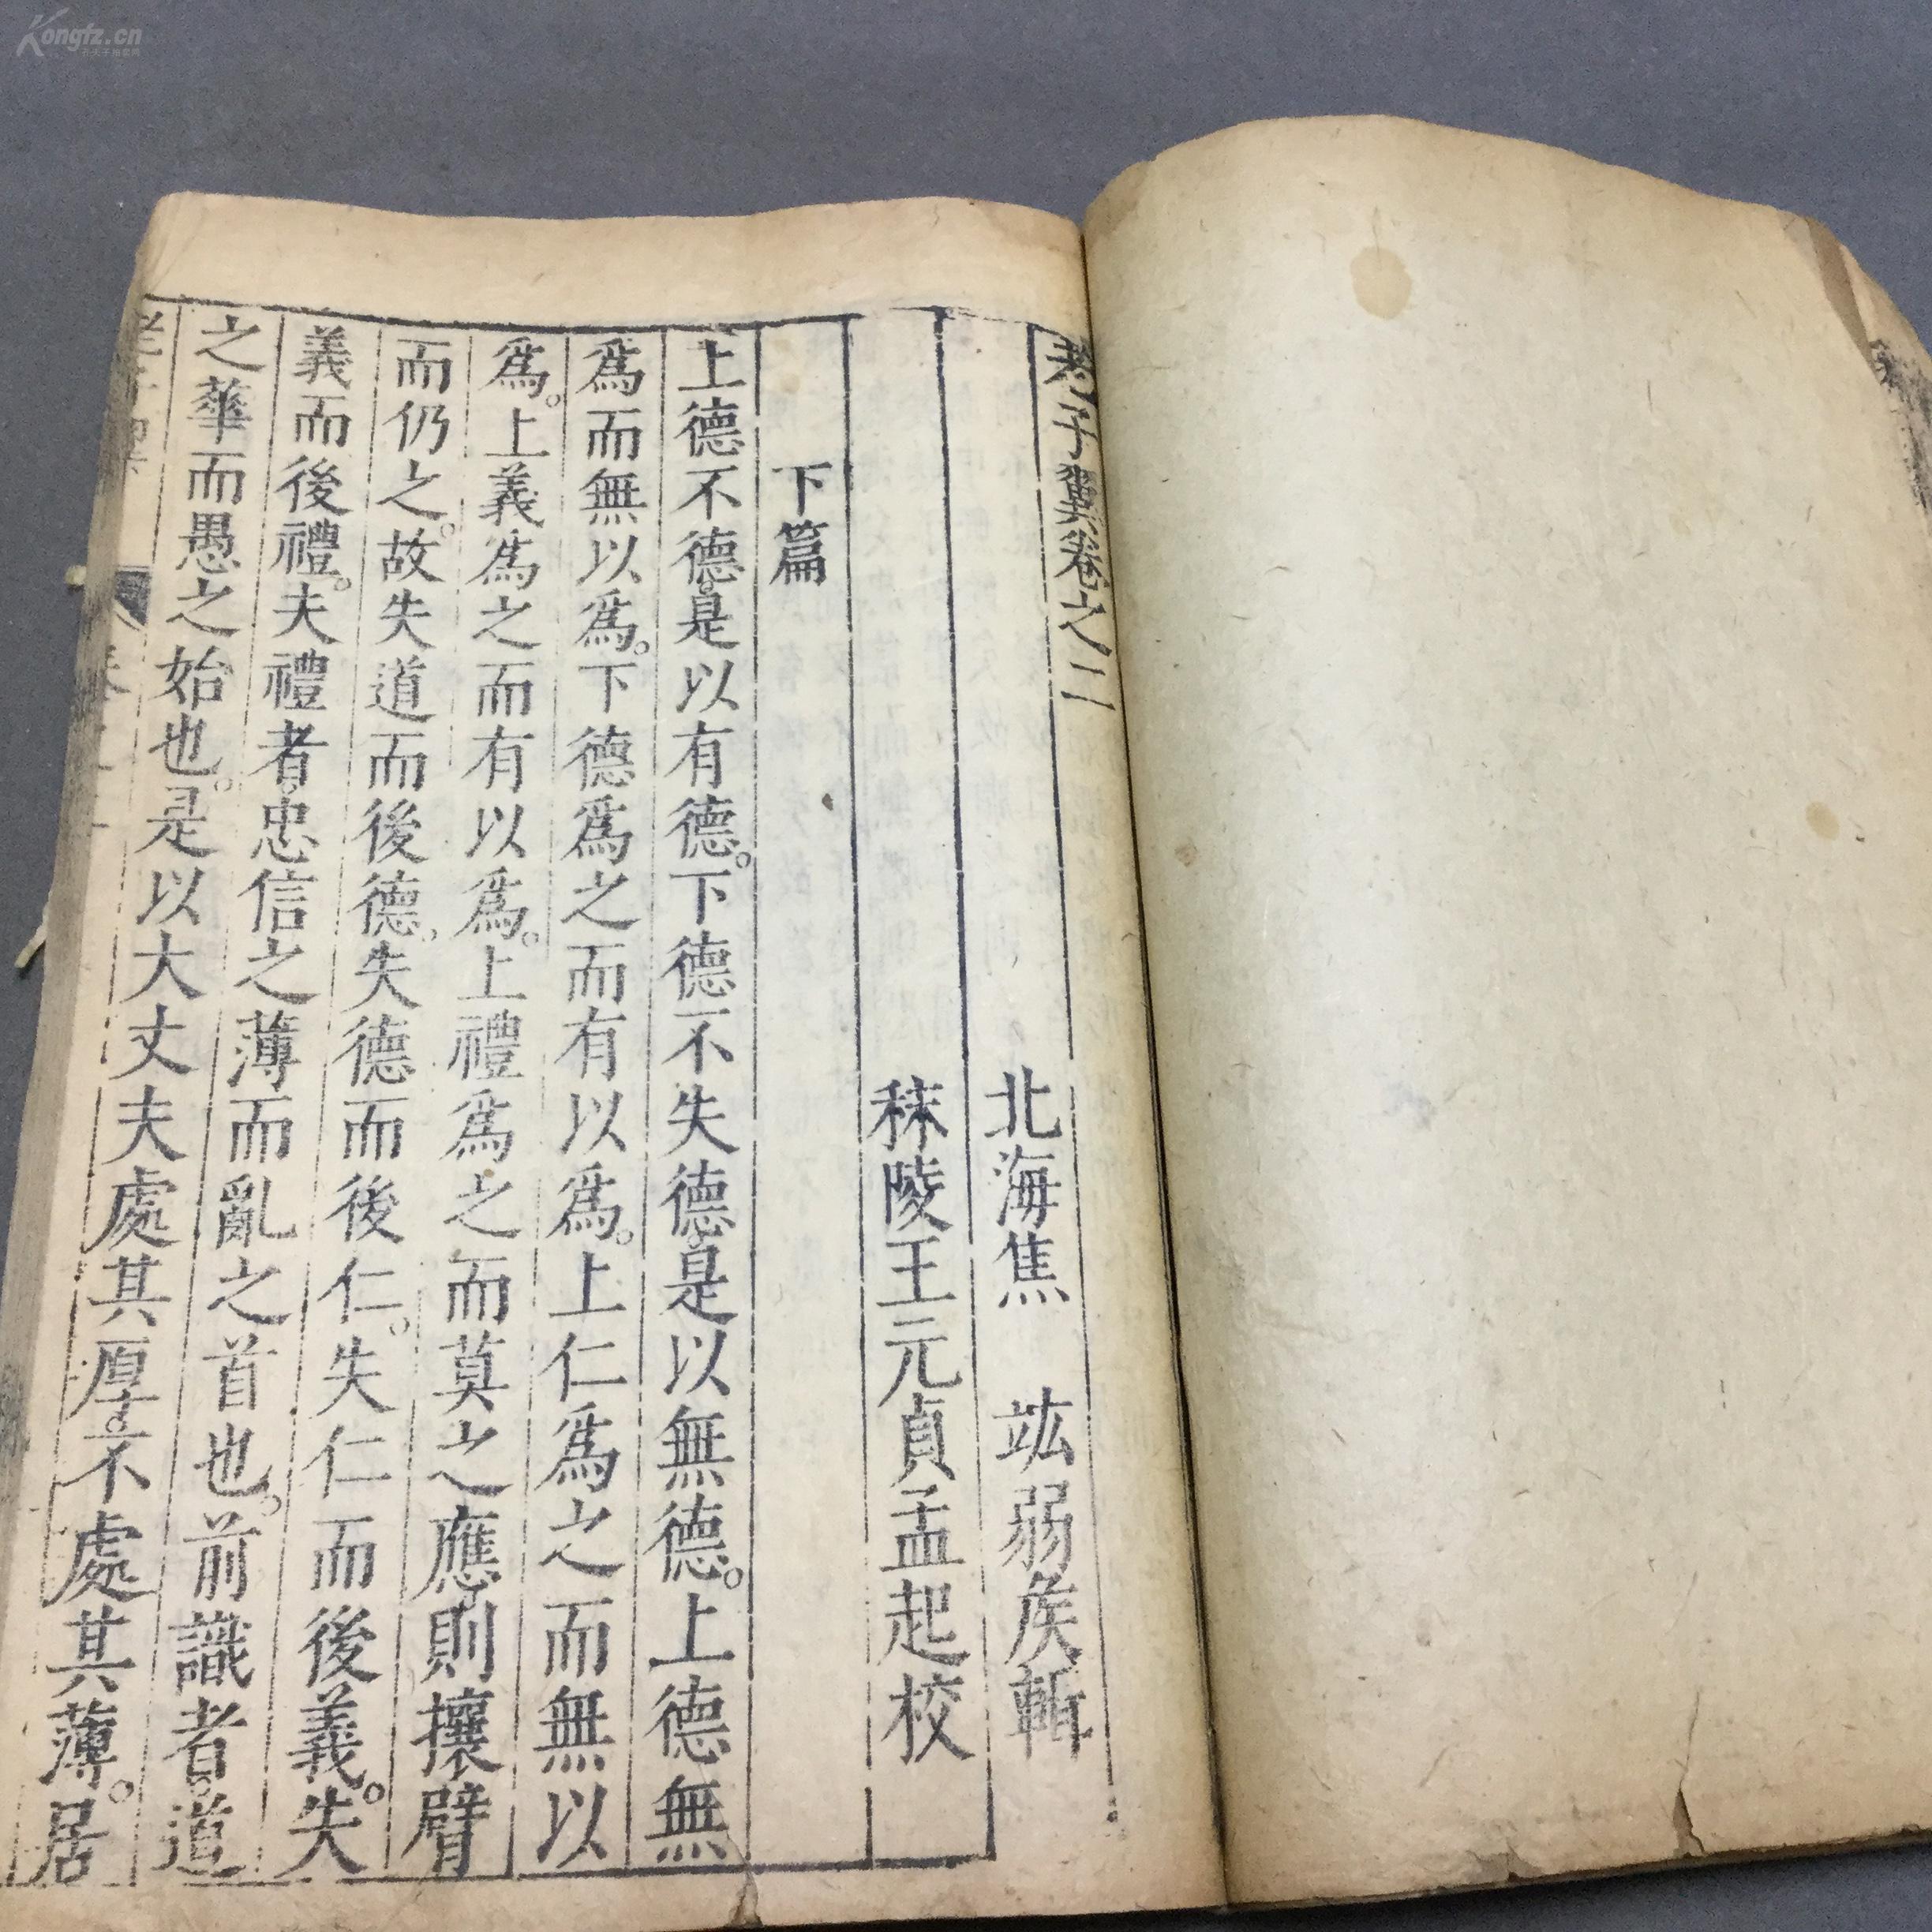 Kongfz.cn
老子翼卷之二
北海焦 竑弱矦輯
秣陵王元貞孟起校
下篇
上德不德。是以有德。下德不失德。是以無德。上德無
爲而無以爲。下德爲之而有以爲。上仁爲之而無以
爲。上義爲之而有以爲。上禮爲之而莫之應。則攘臂
而仍之。故失道而後德。失德而後仁。失仁而後義。失
義而後禮。夫禮者。忠信之薄而亂之首也。前識者。道
之華而愚之始也。是以大丈夫處其厚。不處其薄。居